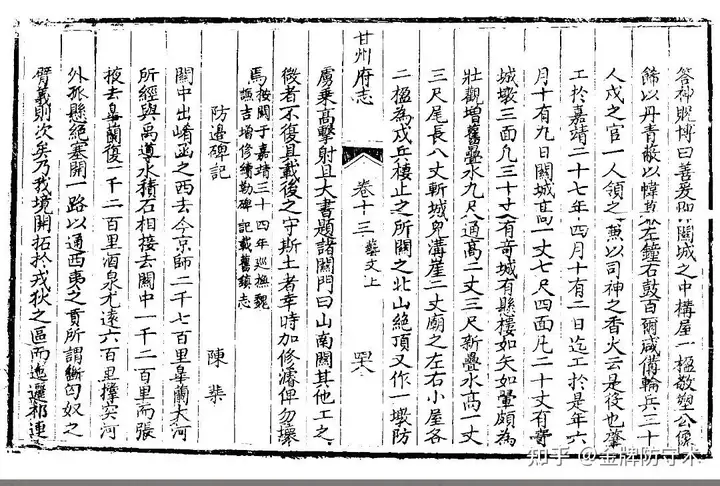 答神貺博曰善爰于關城之中構屋一楹敬塑公像
飾以丹青蔽以幃左鐘右鼓百爾咸備輪兵三十
人戍之官一人領之兼以司神之香火云是役也肇
工於嘉靖二十七年四月十有二日迄工於是年六
月十有九日關城高一丈七尺四面凡二十丈有奇
城壕三面凡三十丈有奇城有縣樓如矢如翬頗為
壯觀增舊疊水九尺通高二丈三尺新疊水高一丈
三尺尾長八丈斬城兒溝崖二丈廟之左右小屋各
二楹為戍兵棲止之所關之北山絕頂又作一墩防
虜乘高擊射且大書題諸關門曰山南關其他工之
徵者不復具載後之守斯土者幸時加修濬俾勿壞
焉 按關于嘉靖三十四年巡撫魏
謙吉增修續勒碑記載舊鎮志
防邊碑記 陳棐
關中出崤函之西去今京師二千七百里皋蘭大河
所經與禹導水積石相接去關中一千二百里而張
掖去皋蘭復一千二百里酒泉尤遠六百里撐突河
外孤縣絕塞開一路以通西夷之貢所謂斷匈奴之
臂義則次矣乃我境開拓於戎狄之區而迤邐祁連
甘州府志 卷十三 藝文上
知乎 @金牌防守木